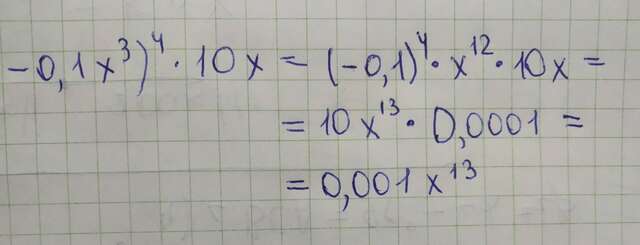 -0,1x³)⁴·10x = (-0,1)⁴·x¹²·10x =
= 10x¹³·0,0001 =
= 0,001x¹³